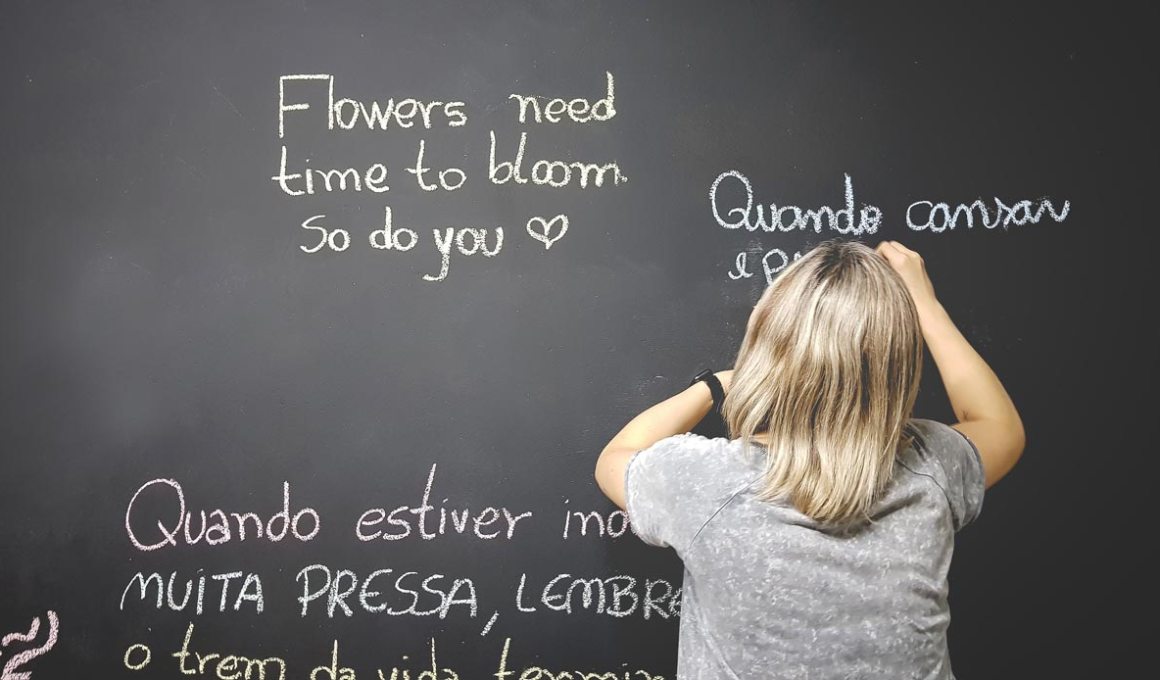 Flowers need
time to bloom.
So do you ♡
Quando cansar
e
Quando estiver
MUITA PRESSA,
o trem da vida